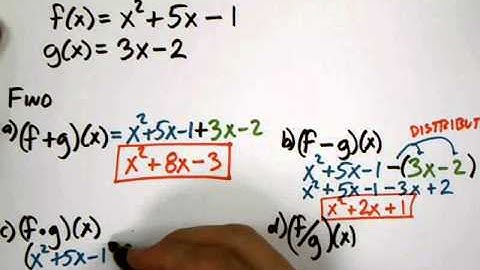 f(x) = x² + 5x - 1
g(x) = 3x - 2
FIND
a) (f+g)(x) = x²+5x-1+3x-2
x² + 8x - 3
b) (f-g)(x)
DISTRIBUT
x²+5x-1-(3x-2)
x²+5x-1-3x+2
x²+2x+1
c) (f•g)(x)
(x²+5x-1
d) (f/g)(x)